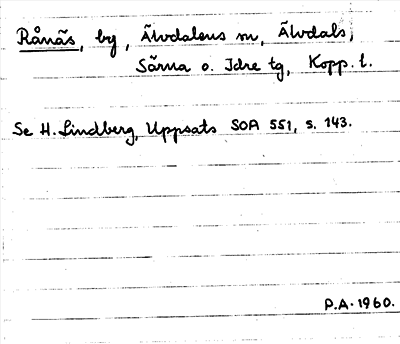 Rånäs, by, Älvdalens m, Älvdals,
Särna o. Idre tg, Kopp. l.
Se H. Lindberg, Uppsats SOA 551, s. 143.
P.A. 1960.